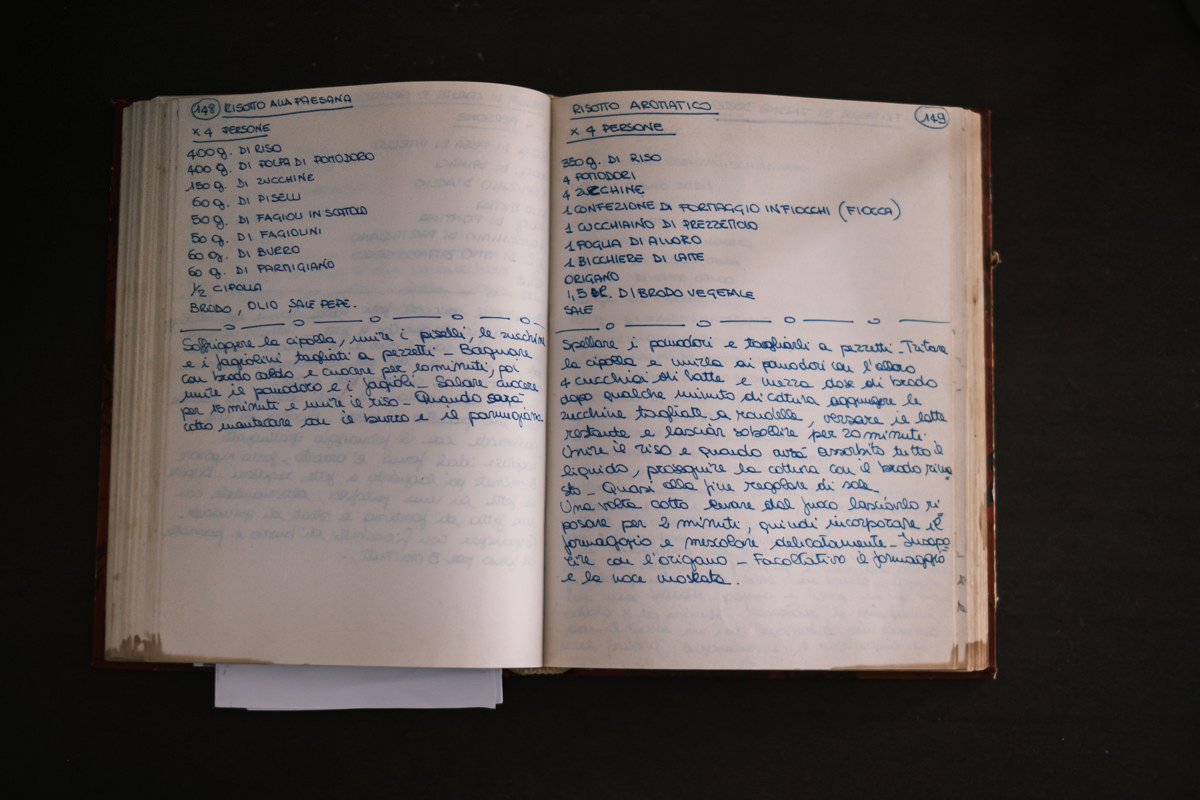 148 RISOTTO ALLA PAESANA
x 4 PERSONE
400 g. DI RISO
400 g. DI POLPA DI POMODORO
150 g. DI ZUCCHINE
60 g. DI PISELLI
50 g. DI FAGIOLI IN SCATOLA
50 g. DI FAGIOLINI
60 g. DI BURRO
60 g. DI PARMIGIANO
1/2 CIPOLLA
BRODO, OLIO, SALE PEPE.
Soffriggere la cipolla, unire i piselli, le zucchine
e i fagiolini tagliati a pezzetti - Bagnare
con brodo caldo e cuocere per 10 minuti, poi
unire il pomodoro e i fagioli - Salare cuocere
per 15 minuti e unire il riso - Quando sarà
cotto mantecare con il burro e il parmigiano
RISOTTO AROMATICO 149
x 4 PERSONE
350 g. DI RISO
4 POMODORI
4 ZUCCHINE
1 CONFEZIONE DI FORMAGGIO IN FIOCCHI (FIOCCA)
1 CUCCHIAINO DI PREZZEMOLO
1 FOGLIA DI ALLORO
1 BICCHIERE DI LATTE
ORIGANO
1,5 DI BRODO VEGETALE
SALE
Spellare i pomodori e tagliarli a pezzetti - Tritare
la cipolla e unirla ai pomodori con l'alloro
4 cucchiai di latte e mezza dose di brodo
dopo qualche minuto di cottura aggiungere le
zucchine tagliate a rondelle, versare il latte
restante e lasciar sobollire per 20 minuti.
Unire il riso e quando avrà assorbito tutto il
liquido, proseguire la cottura con il brodo rima
sto - Quasi alla fine regolare di sale
Una volta cotto levare dal fuoco lasciarlo ri
posare per 2 minuti, quindi incorporare il
formaggio e mescolare delicatamente - Insapo
rire con l'origano - Facoltativo il formaggio
e la noce moscata.